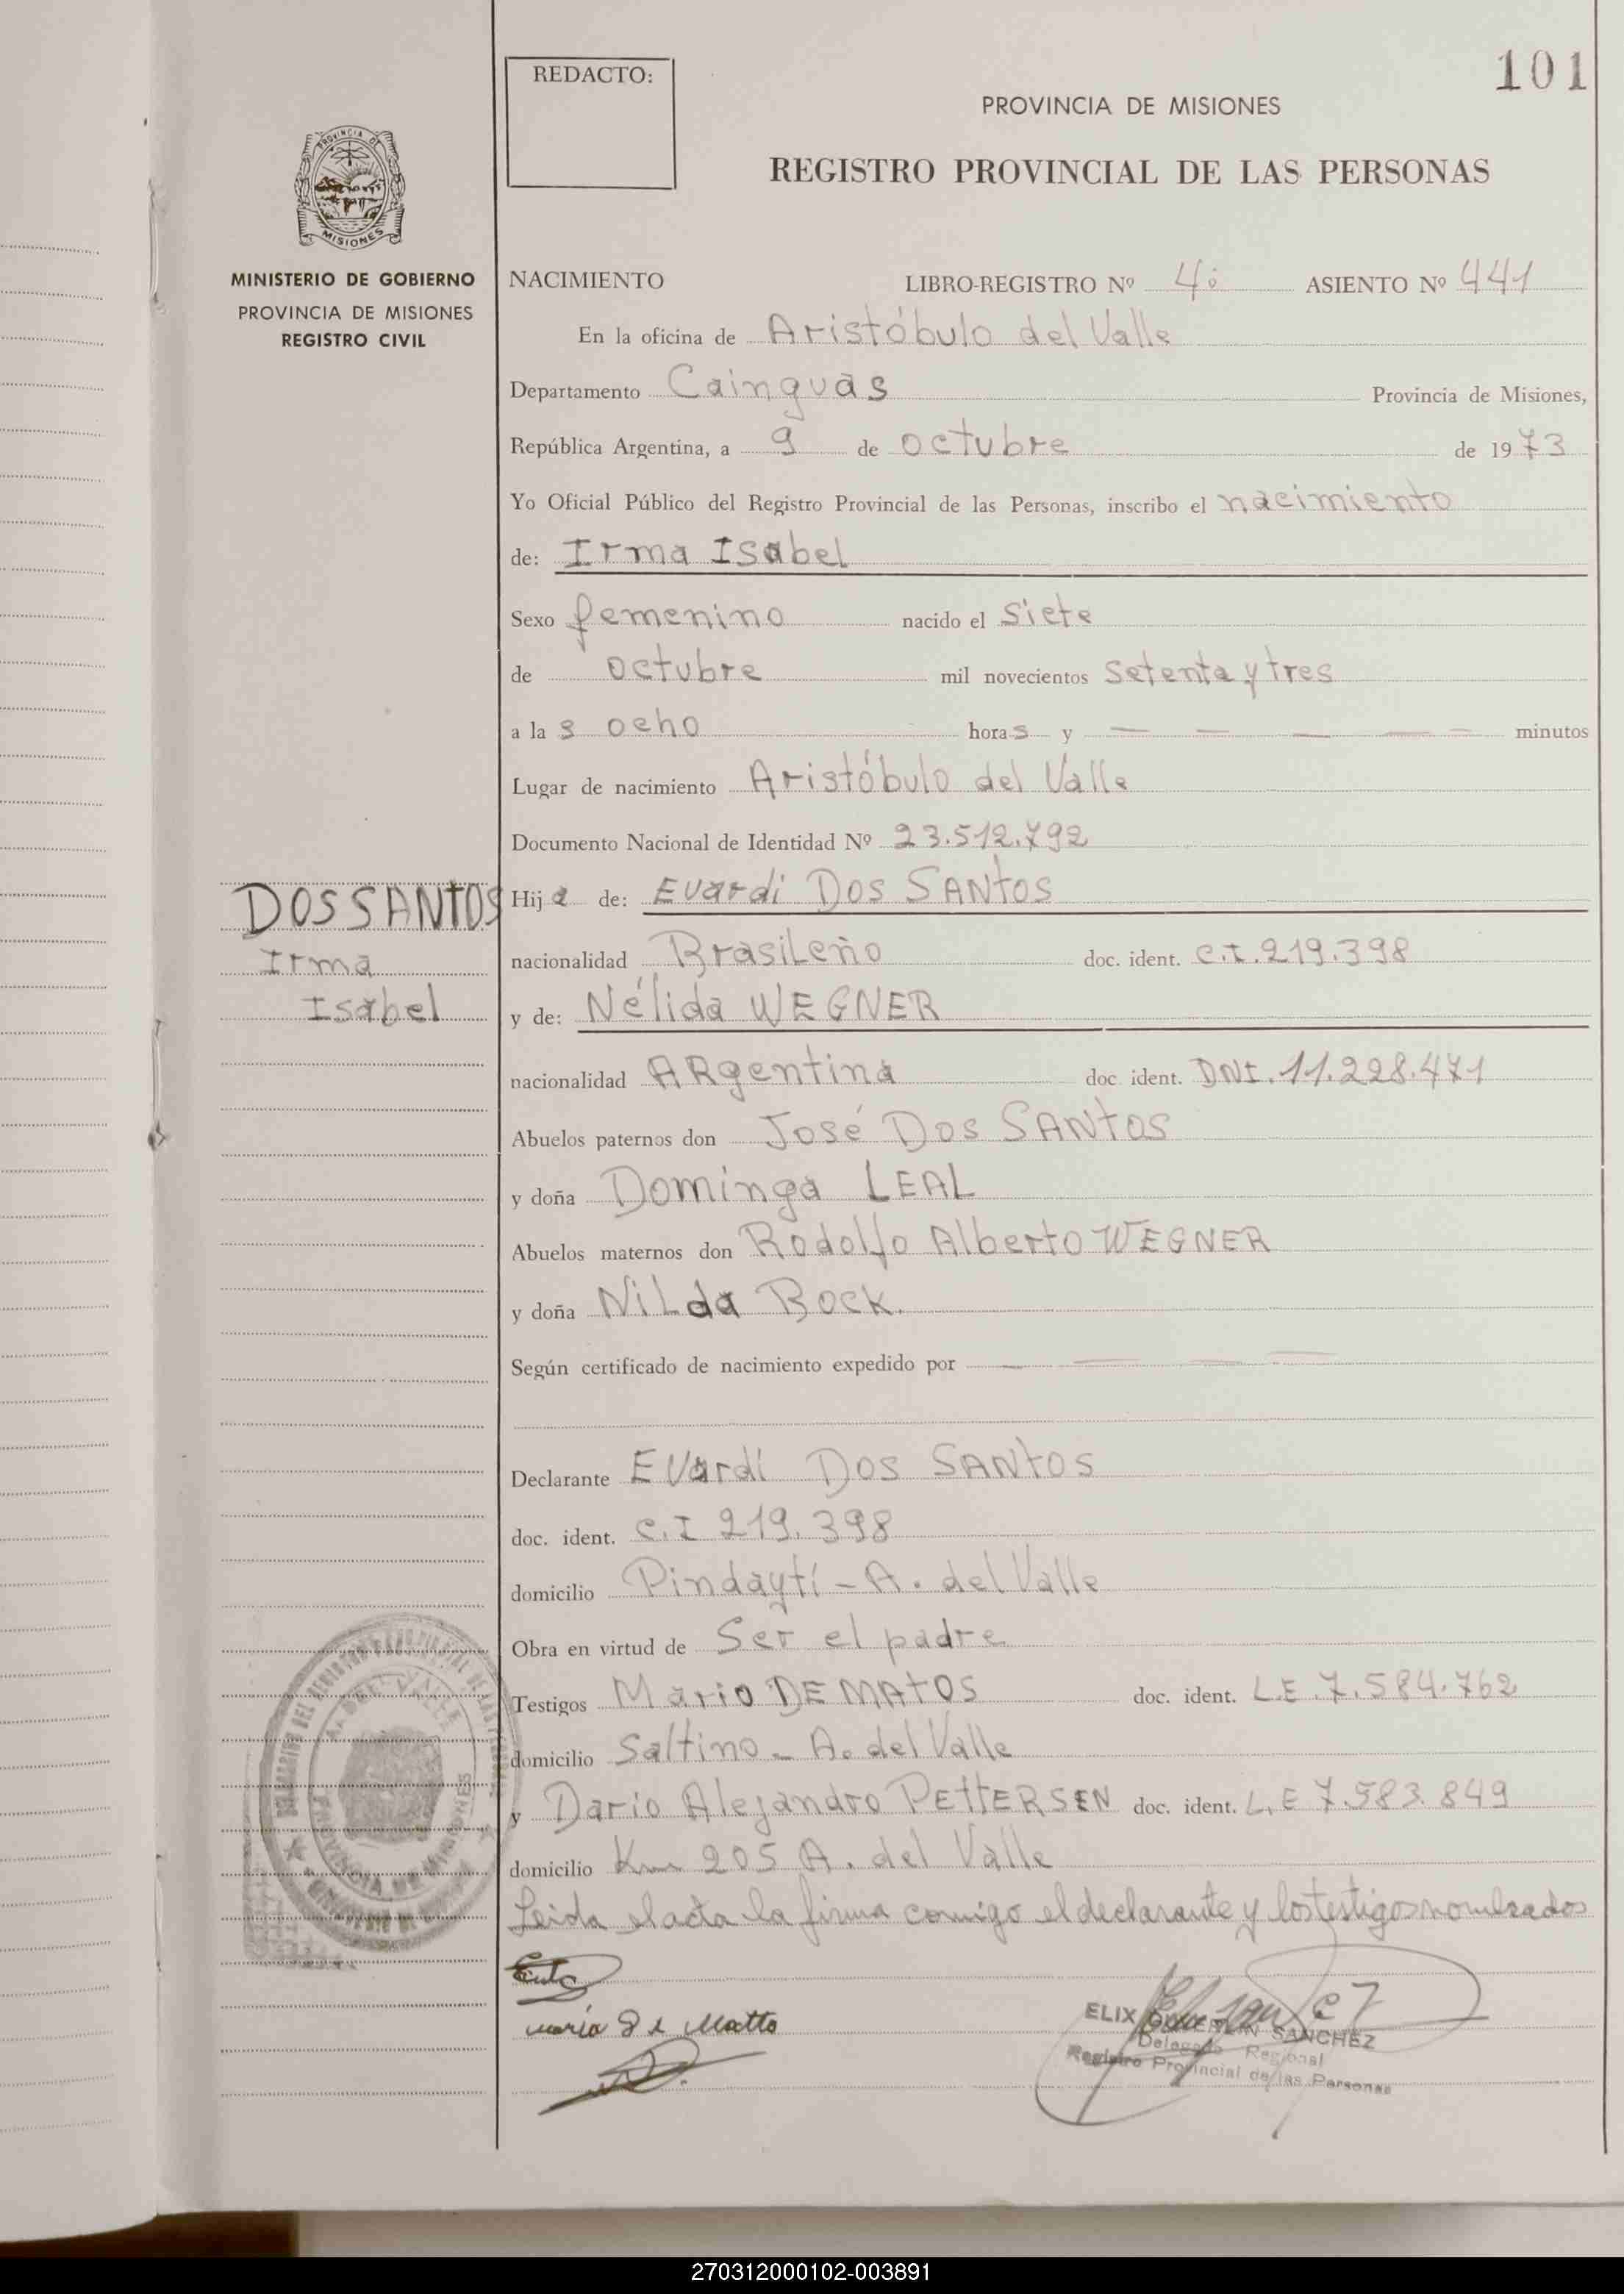 101
REDACTO:
PROVINCIA DE MISIONES
REGISTRO PROVINCIAL DE LAS PERSONAS
PROVINCIA DE
MISIONES
MINISTERIO DE GOBIERNO
PROVINCIA DE MISIONES
REGISTRO CIVIL
NACIMIENTO LIBRO-REGISTRO Nº 4º ASIENTO Nº 441
En la oficina de Aristóbulo del Valle
Departamento Cainguás Provincia de Misiones,
República Argentina, a 9 de octubre de 1973
Yo Oficial Público del Registro Provincial de las Personas, inscribo el nacimiento
de: Irma Isabel
Sexo femenino nacido el siete
de octubre mil novecientos setenta y tres
a las ocho horas y — — — — — minutos
Lugar de nacimiento Aristóbulo del Valle
Documento Nacional de Identidad Nº 23.512.792
DOS SANTOS
Irma
Isabel
Hija de: Evardi DOS SANTOS
nacionalidad Brasileño doc. ident. C.I.219.398
y de: Nélida WEGNER
nacionalidad ARgentina doc ident. DNI.11.228.471
Abuelos paternos don José DOS SANTOS
y doña Dominga LEAL
Abuelos maternos don Rodolfo Alberto WEGNER
y doña Nilda BOCK.
Según certificado de nacimiento expedido por — — — —
Declarante Evardi DOS SANTOS
doc. ident. C.I 219.398
domicilio Pindaytí - A. del Valle
Obra en virtud de ser el padre
Testigos Mario DE MATOS doc. ident. L.E.7.584.762
domicilio Saltino - A. del Valle
y Dario Alejandro PETTERSEN doc. ident. L.E 7.583.849
domicilio Km 205 A. del Valle
Leida el acta la firma conmigo el declarante y los testigos nombrados
maria de Matto
ELIX SANCHEZ
Delegado Regional
Registro Provincial de las Personas
PROVINCIA DE MISIONES
270312000102-003891